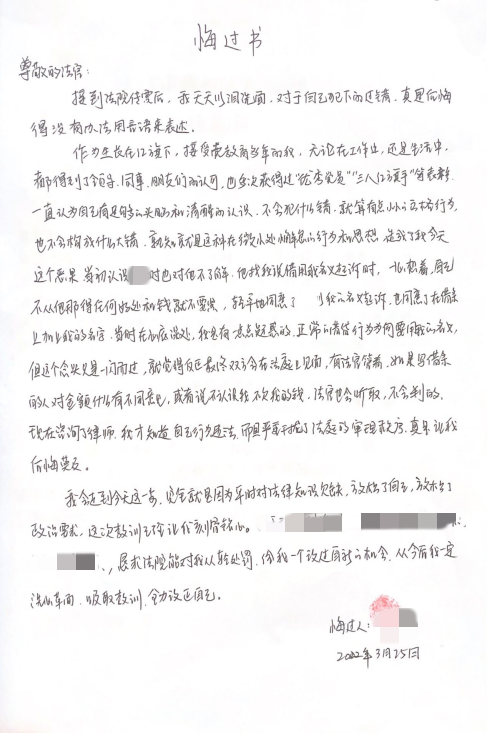 悔过书
尊敬的法官：
接到法院传票后，我天天以泪洗面，对于自己犯下的过错，真是后悔
得没有办法用言语来表述。
作为生长在红旗下，接受党教育多年的我，无论在工作上，还是生活中，
都得到了领导、同事、朋友们的认可，也多次获得过“优秀党员”“三八红旗手”等表彰
一直认为自己有足够的头脑和清醒的认识，不会犯什么错，就算有点小小立场行为，
也不会构成什么大错，孰知就是这种在微小处懈怠的行为和思想，造成了我今天
这个恶果。当初认识 时也对他不了解，他找我说借用我名义起诉时，一心想着，自己
不从他那得任何好处和钱就不要紧，轻率地同意了以我的名义起诉，也同意了在借条
上加上我的名字。当时在加名字处，我是有一点点疑惑的，正常的借贷行为为何要用我的名义，
但这个念头又是一闪而过，就觉得反正最终双方会在法庭上见面，有法官管着，如果写借条
的人对金额什么有不同意见，或者说不认识我不欠我的钱，法官也会听取，不会判的。
现在咨询了律师，我才知道自己行为违法，而且严重干扰了法庭的审理秩序，真是让我
后悔莫及。
我会走到今天这一步，完全就是因为平时对法律知识欠缺，放低了自己，放松了
政治需求，这次教训足以让我刻骨铭心。
，恳求法院能对我从轻处罚，给我一个改过自新的机会，从今后我一定
洗心革面，吸取教训，全力改正自己。
悔过人：
2022年3月25日